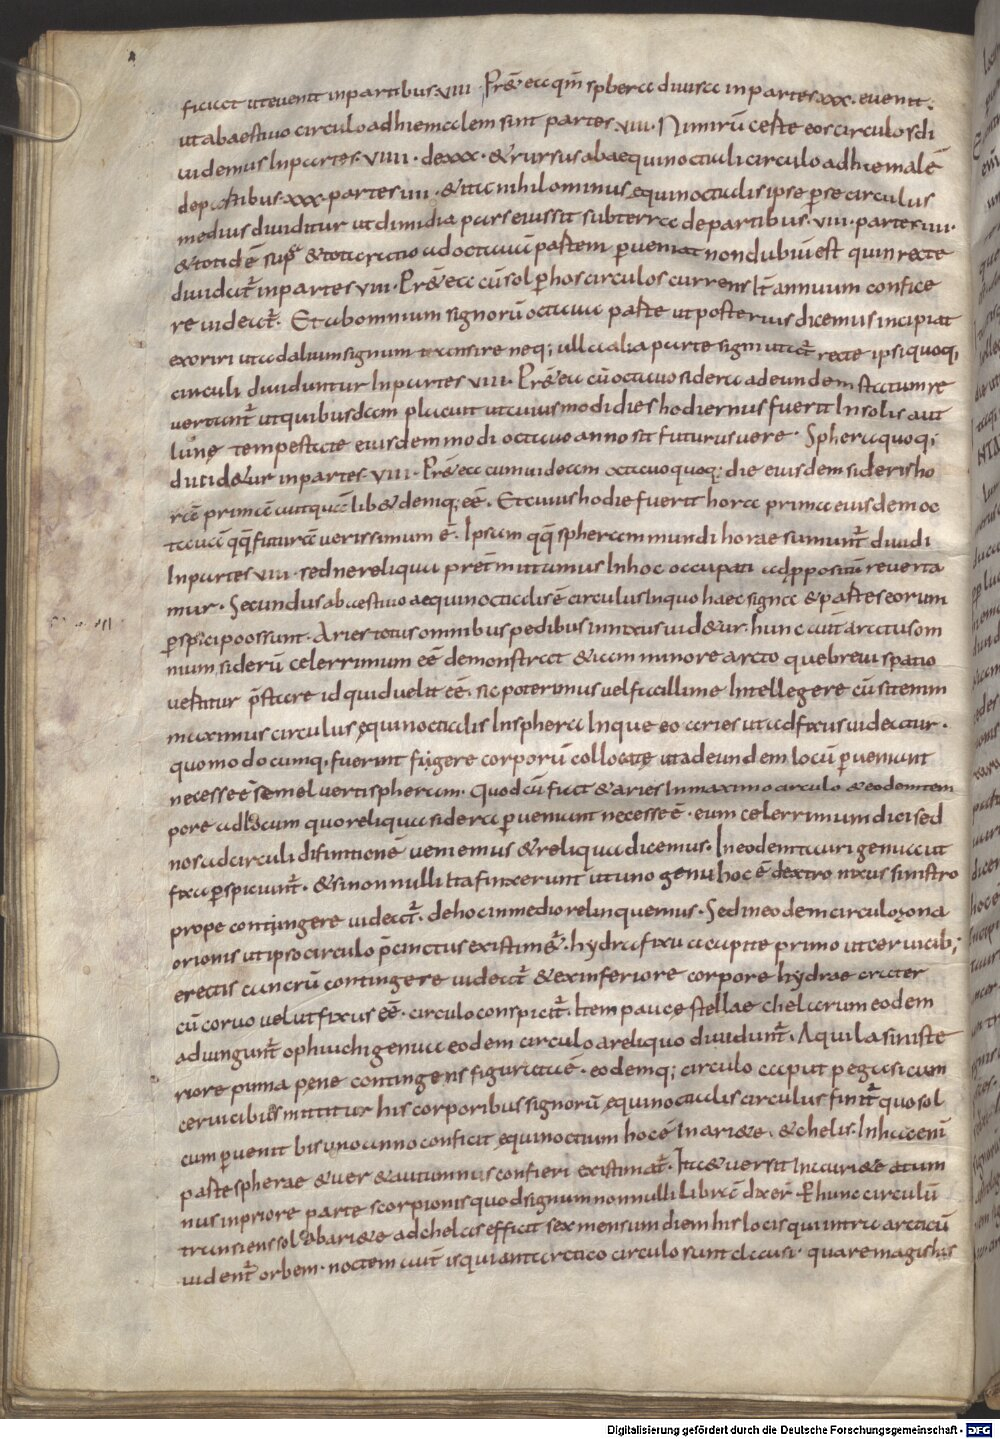 ficiat ut euenit in partibus · VIII · Pręt̃ ea qm̃ sphera diuisa in partes XXX · euenit ·
ut ab aestiuo circulo ad hiemalem sint partes · VIII · Nimirũ caeste eos circulos di
uidemus In partes · VIIII · de XXX · & rursus ab aequinoctiali circulo ad hiemalẽ
de partibus · XXX · partes IIII · & ita nihilominus ęquinoctialis ipse p̱ se circulus
medius diuiditur ut dimidia pars eius sit subterra de partibus · VIII · partes IIII ·
& totidẽ supͣ & tota ratio ad octauã partem p̱ueniat non dubiũ est quin recte
diuidat̃ in partes VIII · Pręt̃ ea cũ sol p̱ hos circulos currens It̃ annuum confice
re uideat̃ · Et ab omnium signorũ octaua parte ut posterius dicemus incipiat
exoriri ut ad alium signum transire neq; ulla alia parte signi utat̃ recte ipsi quoq;
circuli diuiduntur In partes VIII · Pręt̃ ea cũ octauo sidera ad eundem statum re
uertant̃ ut quibusdam placuit ut cuius modi dies hodiernus fuerit In solis aut
lunę tempestate eiusdem modi octauo anno sit futurus uere · Sphera quoq;
diuid&ur in partes · VIII · Pręt̃ ea cum uideam octauo quoq; die eiusdem sideris ho
rã primã aut quã lib& demq; eẽ · Et cuius hodie fuerit hora prima eiusdem oc
tauã qq̃ futurã uerissimum ẽ · Ipsam qq̃ spheram mundi horae sumunt̃ diuidi
In partes VIII · sed ne reliqua pret̃mittamus In hoc occupati ad p̱positũ reuerta
mur · Secundus ab aestiuo aequinoctialis ẽ circulus In quo haec signa & partes eorum
p̱spici possunt · Aries totus omnibus pedibus innixus uid&ur hunc aut̃ aratus om
nium siderũ celerrimum eẽ demonstrat & iam minore arcto que breui spatio
uertitur p̄stare id quid uelit eẽ · sic poterimus uel facillime Intellegere cũ sit enim
maximus circulus ęquinoctialis In sphera Inque eo aries ut adfixus uideatur ·
quomodocumq; fuerint fugere corporũ collocatę ut ad eundem locũ p̱ueniant
necesse ẽ semel uerti spheram · Quod cũ fiat & aries In maximo circulo & eodem tem
pore ad locum quo reliqua sidera p̱ueniant necesse ẽ · eum celerrimum dici sed
nos ad circuli difinitionẽ ueniemus & reliqua dicemus · In eodem tauri genua ut
fixa p̱spiciunt̃ · & si nonnulli Ita finxerunt ut uno genu hoc ẽ dextro nixus sinistro
prope contingere uideat̃ · de hoc in medio relinquemus · Sed in eodem circulo zona
orionis ut ipso circulo p̄cinctus existimet̃ · hydra fixu a capite primo ut ceruicib;
erectis cancrũ contingere uideat̃ & ex inferiore corpore hydrae crater
cũ coruo uelut fixus eẽ · circulo conspicit̃ · Item paucę stellae chelarum eodem
adiungunt̃ ophiuchi genua eodem circulo a reliquo diuidunt̃ · Aquila siniste
riore pinna pęne contingens figurata ẽ · eodemq; circulo caput pegasi cum
ceruicibus nititur his corporibus signorũ ęquinoctialis circulus finit̃ quo sol
cum p̱uenit bis uno anno conficit ęquinoctium hoc ẽ In ari&e · & chelis · In hac eni
parte spherae & uer & autumnus confieri existimat̃ · Ita & uer sit In ari&e autum
nus in priore parte scorpionis quod signum nonnulli librã dixer̃ · P̱ hunc circulũ
transiens sol ab ari&e ad chelas efficit sex mensum diem his locis qui intra arcticũ
uident̃ orbem · noctem aut̃ is qui antarctico circulo sunt clausi · quare magis his